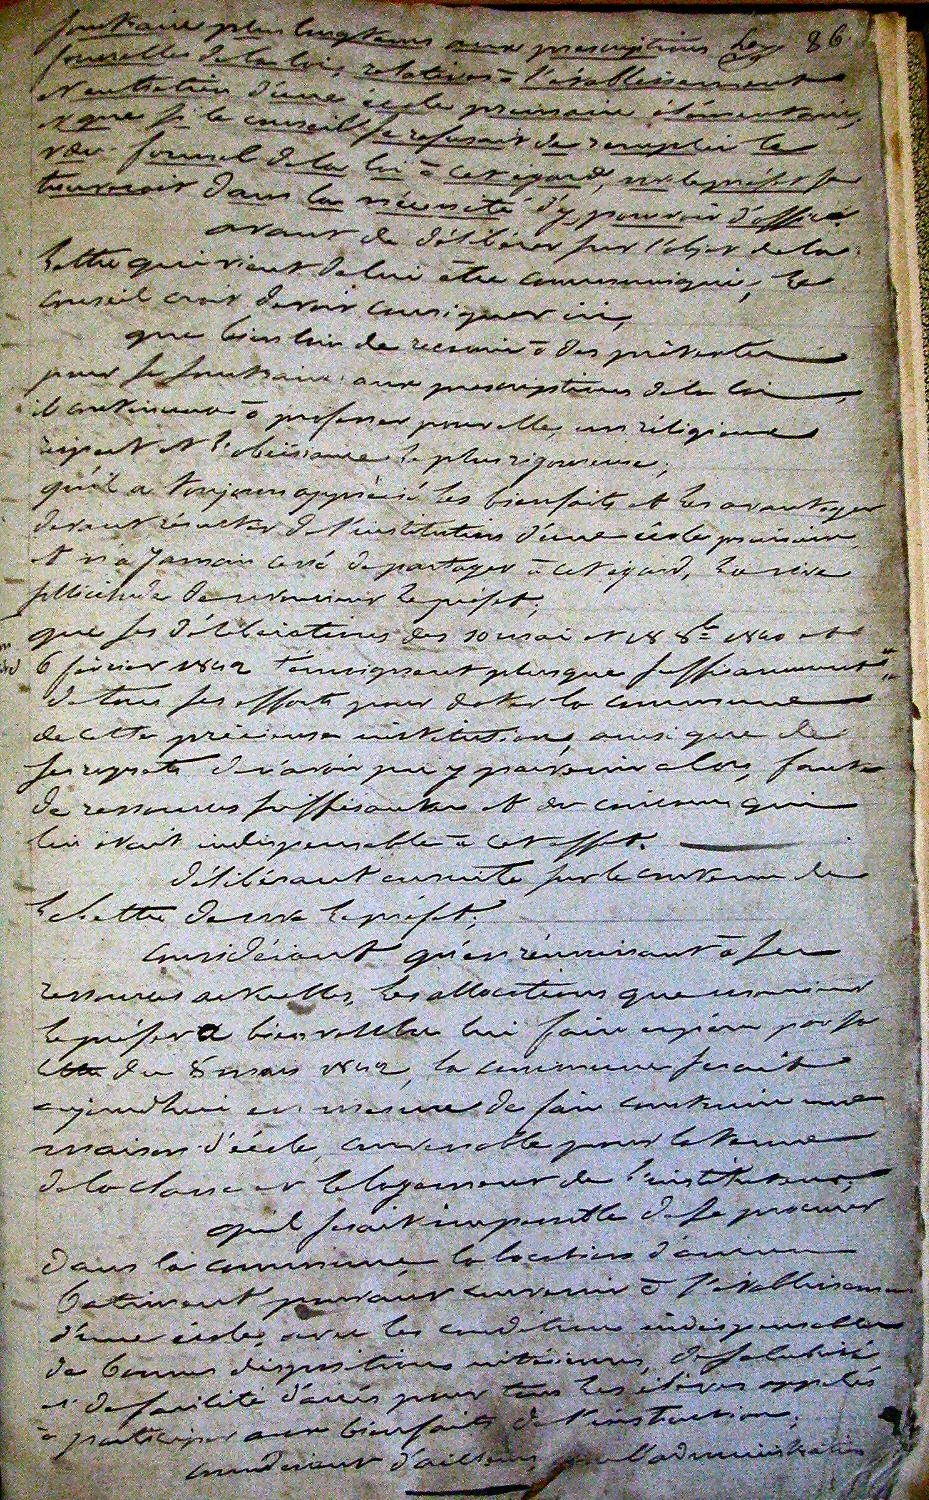 soustraire plus longtems aux prescriptions 86.
formelles de la loi, relatives à l'établissement
et entretien d'une école primaire élémentaire,
et que si le conseil se refusait de remplir le
vœu formel de la loi à cet égard, mr le préfet se
trouverait dans la nécessité d'y pourvoir d'office
avant de délibérer sur l'objet de la
lettre qui vient de lui être communiquée, le
conseil croit devoir consigner ici,
que bien loin de recourir à des prétextes
pour se soustraire aux prescriptions de la loi,
il continuera à professer pour elle, un réligieux
respect et l'obéissance la plus rigoureuse;
qu'il a toujours apprécié les bienfaits et les avantages
devant résulter de l'institution d'une école primaire,
et n'a jamais cessé de partager à cet égard, la vive
sollicitude de monsieur le préfet;
que ses délibérations des 10 mai et 18 8bre 1840 et
6 février 1842 témoignent plusque suffisamment
de tous ses efforts pour doter la commune
de cette précieuse institution, ainsi que de
ses regrets de n'avoir pu y parvenir alors, faute
de ressources suffisantes et du concours qui
lui était indispensable à cet effet.
délibérant ensuite sur le contenu de
la lettre de mr le préfet;
considérant qu'en réunissant à ses
ressources actuelles, les allocations que monsieur
le préfet a bien voulu lui faire espérer par sa
lettre du 8 mars 1842, la commune serait
aujourd'hui en mesure de faire construire une
maison d'école, convenable pour la tenue
de la classe et le logement de l'instituteur;
qu'il serait impossible de se procurer
dans la commune, la location d'aucun
batiment pouvant convenir à l'établissement
d'une école, avec les conditions indispensables
de bonnes dispositions intérieures, de salubrité
et de facilité d'accès pour tous les élèves appelés
à participer aux bienfaits de l'instruction;
considérant d'ailleurs, l'administration